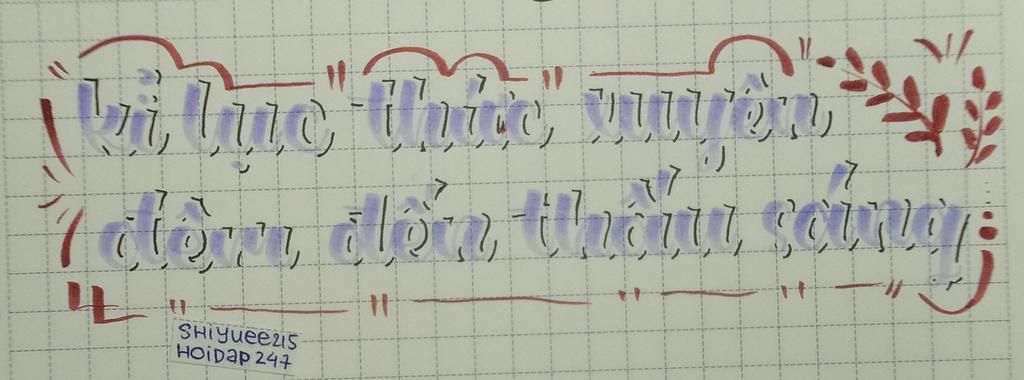 kỉ lục thức xuyên
đêm đến thấu sáng
SHiYUEE215
HOiDAP247